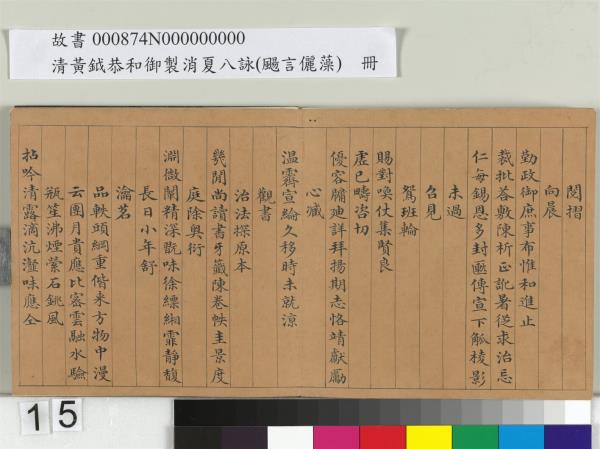 故書 000874N000000000
清黃鉞恭和御製消夏八詠(颺言儷藻) 冊
閱摺
向晨
勤政御庶事布惟和進止
裁批荅敷陳析正訛暑從求治忘
仁每錫恩多封匭傳宣下觚稜影
未過
召見
鴛班輪
賜對喚仗集賢良
虛已疇咨切
優容牖迪詳拜揚期志恪靖獻勵
心臧
温霽宣綸久移時未就涼
觀書
治法探原本
幾閒尚讀書牙籤陳卷帙圭景度
庭除奧衍
淵微闡精深戩味徐縹緗霏靜馥
長日小年舒
瀹茗
品軼頭綱重偕来方物中漫
云團月貴應比密雲融水驗
瓶笙沸煙縈石銚風
拈吟清露滴沆瀣味應仝
15